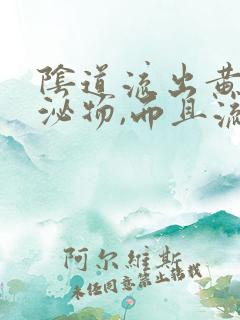 陰道流出黄
泌物,而且流
阿尔維斯
未经同意禁止转载